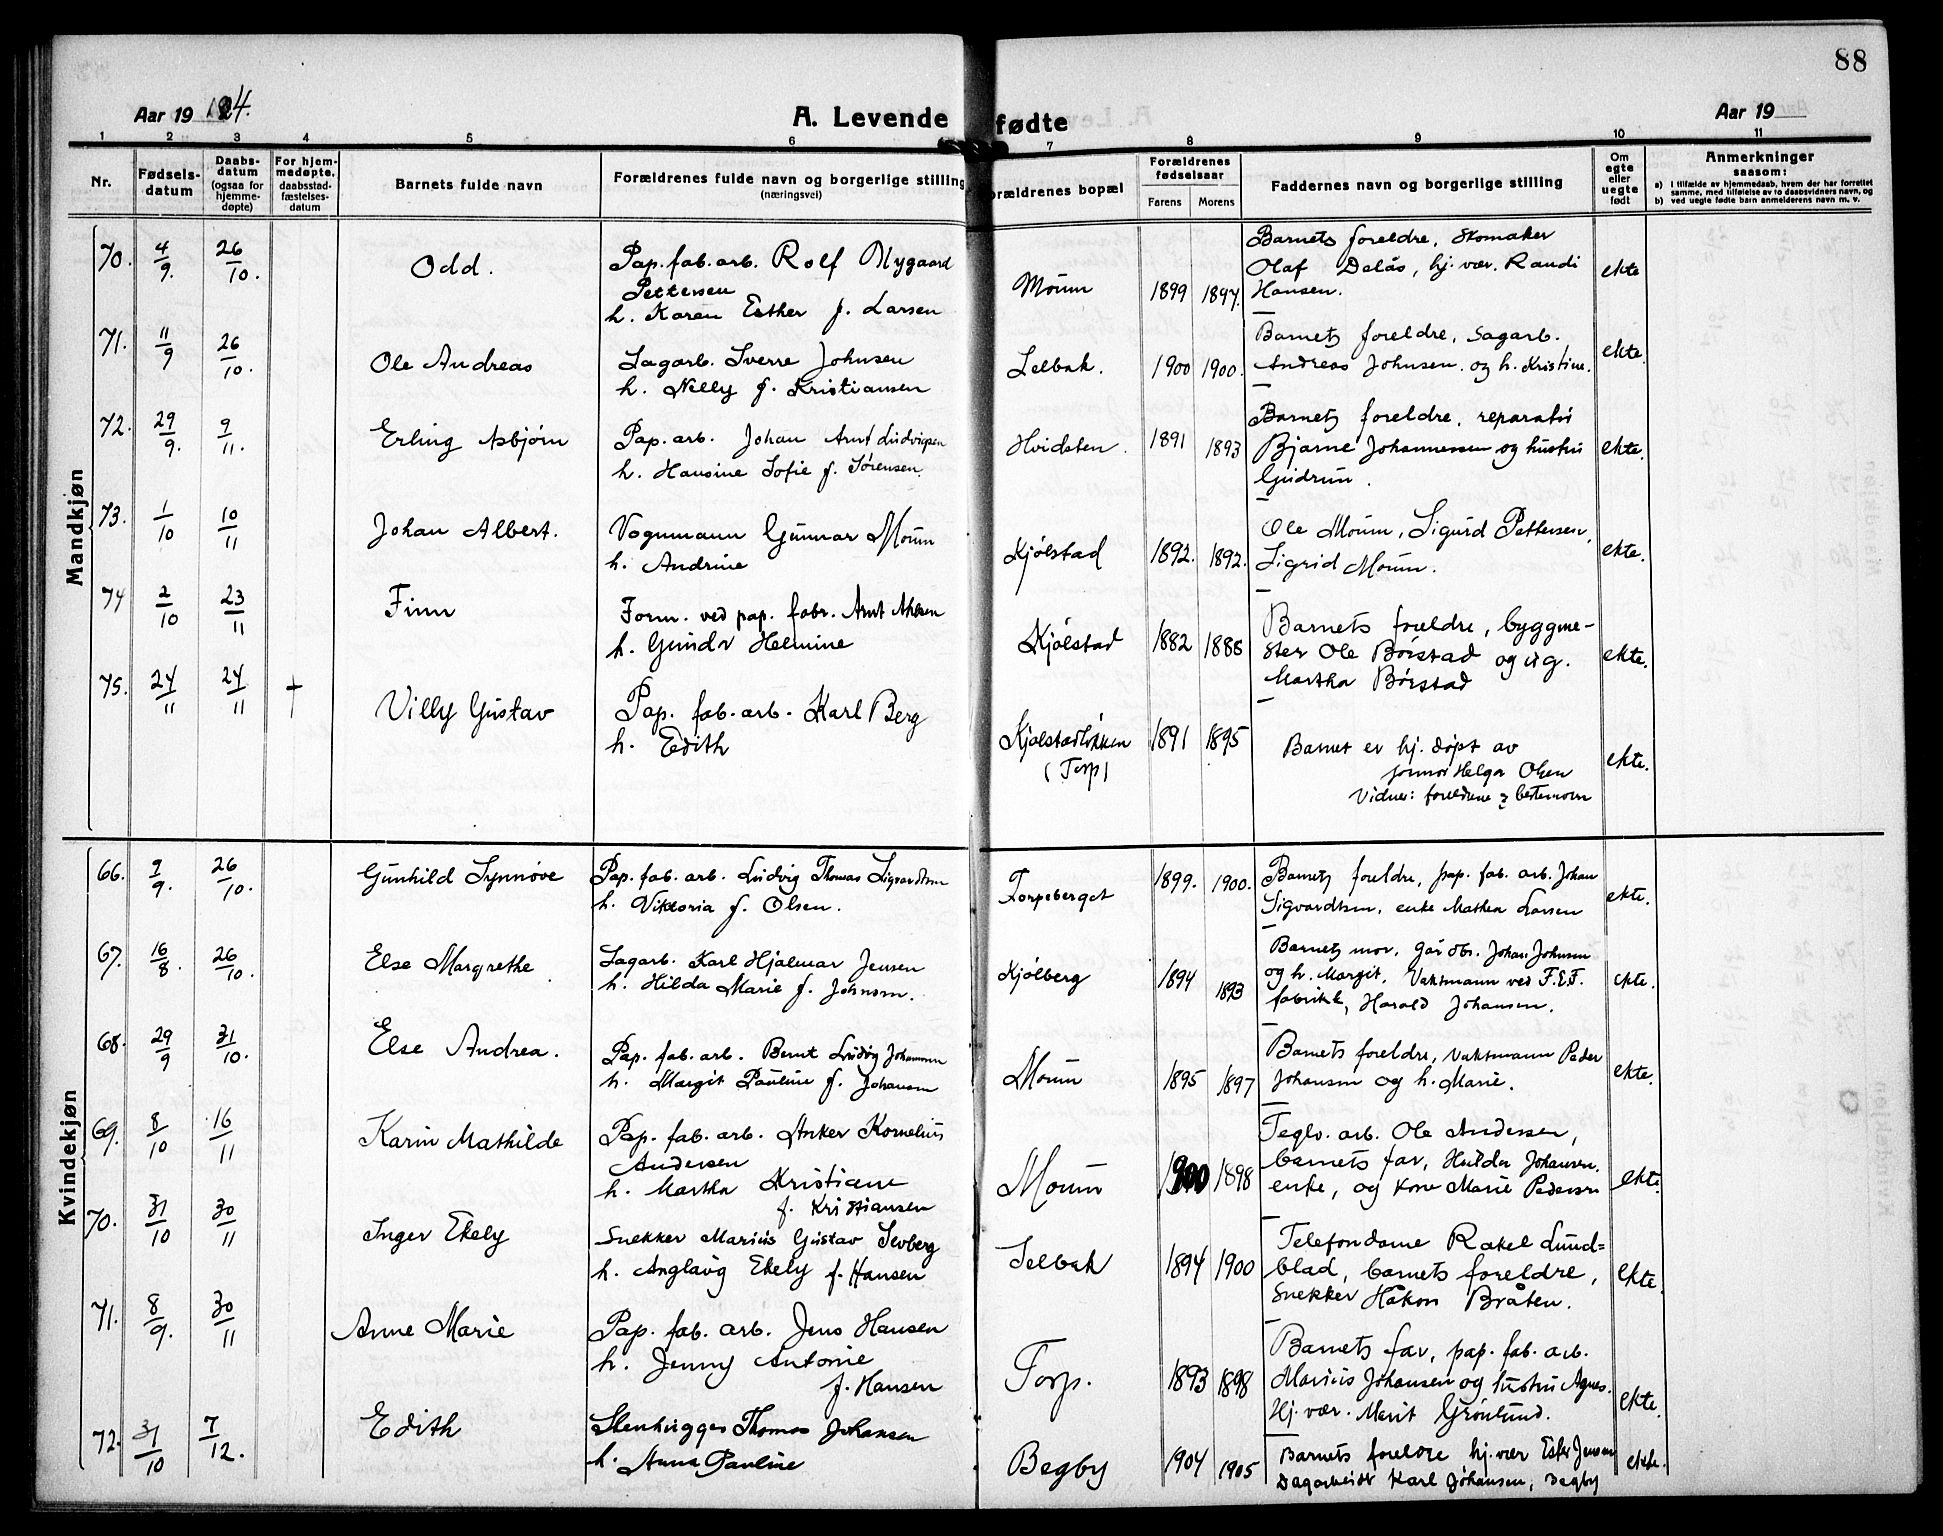 88
Aar 19 24.
A. Levende fødte
Aar 19
1 2 3 4 5 6 7 8 9 10 11
Nr.
Fødsels-
datum
Daabs-
datum
(ogsaa for
hjemme-
døpte)
For hjem-
medøpte,
daabsstad-
fæstelses-
datum
Barnets fulde navn
Forældrenes fulde navn og borgerlige stilling
(næringsvei)
orældrenes bopæl
Forældrenes
fødselsaar
Farens Morens
Faddernes navn og borgerlige stilling
Om
egte
eller
uegte
født
Anmerkninger
saasom:
a) I tilfælde av hjemmedaab, hvem der har forrettet
samme, med tilføielse av to daabsvidners navn, og
b) ved uegte fødte barn anmelderens navn m. v.
Mandkjøn
70. 4/9. 26/10. Odd.
Pap. fab. arb. Rolf Nygaard
Pettersen
h. Karen Esther f. Larsen
Moum 1899 1897.
Barnets foreldre, Skomaker
Olaf Dalås, hj. vær. Randi
Hansen.
ekte
71. 11/9 26/10. Ole Andreas
Sagarb. Sverre Johnsen
h. Nelly f. Kristiansen
Selbak. 1900 1900.
Barnets foreldre, Sagarb.
Andreas Johnsen og h. Kristine.
ekte.
72. 29/9. 9/11. Erling Asbjørn
Pap. arb. Johan Arnt Ludvigsen
h. Hansine Sofie f. Sørensen.
Hvidsten. 1891 1893
Barnets foreldre, reparatør
Bjarne Johannessen og hustru
Gudrun.
ekte.
73. 1/10 10/11 Johan Albert.
Vognmann Gunnar Moum
h. Andrine
Kjølstad 1892. 1892.
Ole Moum, Sigurd Pettersen,
Sigrid Moum.
ekte.
74 2/10 23/11 Finn
Form. ved pap. fabr. Arnt
h. Gunda Helmine
Kjølstad 1882 1885
Barnets foreldre, byggme-
ster Ole Børstad og ug.
Martha Børstad
ekte.
75. 24/11 24/11 † Villy Gustav
Pap. fab. arb. Karl Berg
h. Edith
Kjølstadløkken
(Torp) 1891 1895
Barnet er hj. døpt av
jormor Helga Olsen
Vidner: foreldrene & bestemoren
ekte.
Kvindekjøn
66. 9/9. 26/10. Gunhild Synnøve
Pap. fab. arb. Ludvig Thomas Sigvardtsen
h. Viktoria f. Olsen.
Torpeberget 1899. 1900.
Barnets foreldre, pap. fab. arb. Johan
Sigvardtsen, enke Mathea Larsen
ekte.
67. 16/8. 26/10. Else Margrethe
Sagarb. Karl Hjalmar Jensen
h. Hilda Marie f. Johnsen.
Kjølberg 1894 1893
Barnets mor, gårdbr. Johan Johnsen
og h. Margit, Vaktmann ved F.E.F.
fabrikk, Harald Johansen.
ekte.
68. 29/9 31/10. Else Andrea.
Pap. fab. arb. Bernt Ludvig Johannsen
h. Margit Pauline f. Johansen
Moum 1895 1897
Barnets foreldre, Vaktmann Peder
Johansen og h. Marie.
ekte.
69. 8/10 16/11 Karin Mathilde
Pap. fab. arb. Anker Kornelius
Andersen
h. Martha Kristiane
f. Kristiansen
Moum 1900 1898
Teglv. arb. Ole Andersen,
barnets far, Hulda Johansen,
enke, og kone Marie Pedersen
ekte.
70. 31/10 30/11 Inger Ekely
Snekker Marius Gustav Seeberg
h. Anglaug Ekely f. Hansen
Selbak 1894 1900
Telefondame Rakel Lund=
blad, barnets foreldre,
Snekker Håkon Bråten.
ekte.
71. 8/9. 30/11 Anne Marie
Pap. fab. arb. Jens Hansen
h. Jenny Antonie
f. Hansen
Torp. 1893 1898
Barnets far, pap. fab. arb.
Marius Johansen og hustru Agnes.
Hj. vær. Marit Grönlund.
ekte.
72. 31/10 7/12. Edith
Stenhugger Thomas Johansen
h. Anna Pauline
Begby 1904 1905
Barnets foreldre hj. vær Ester Jensen
Dagarbeider Karl Johansen, Begby
ekte.